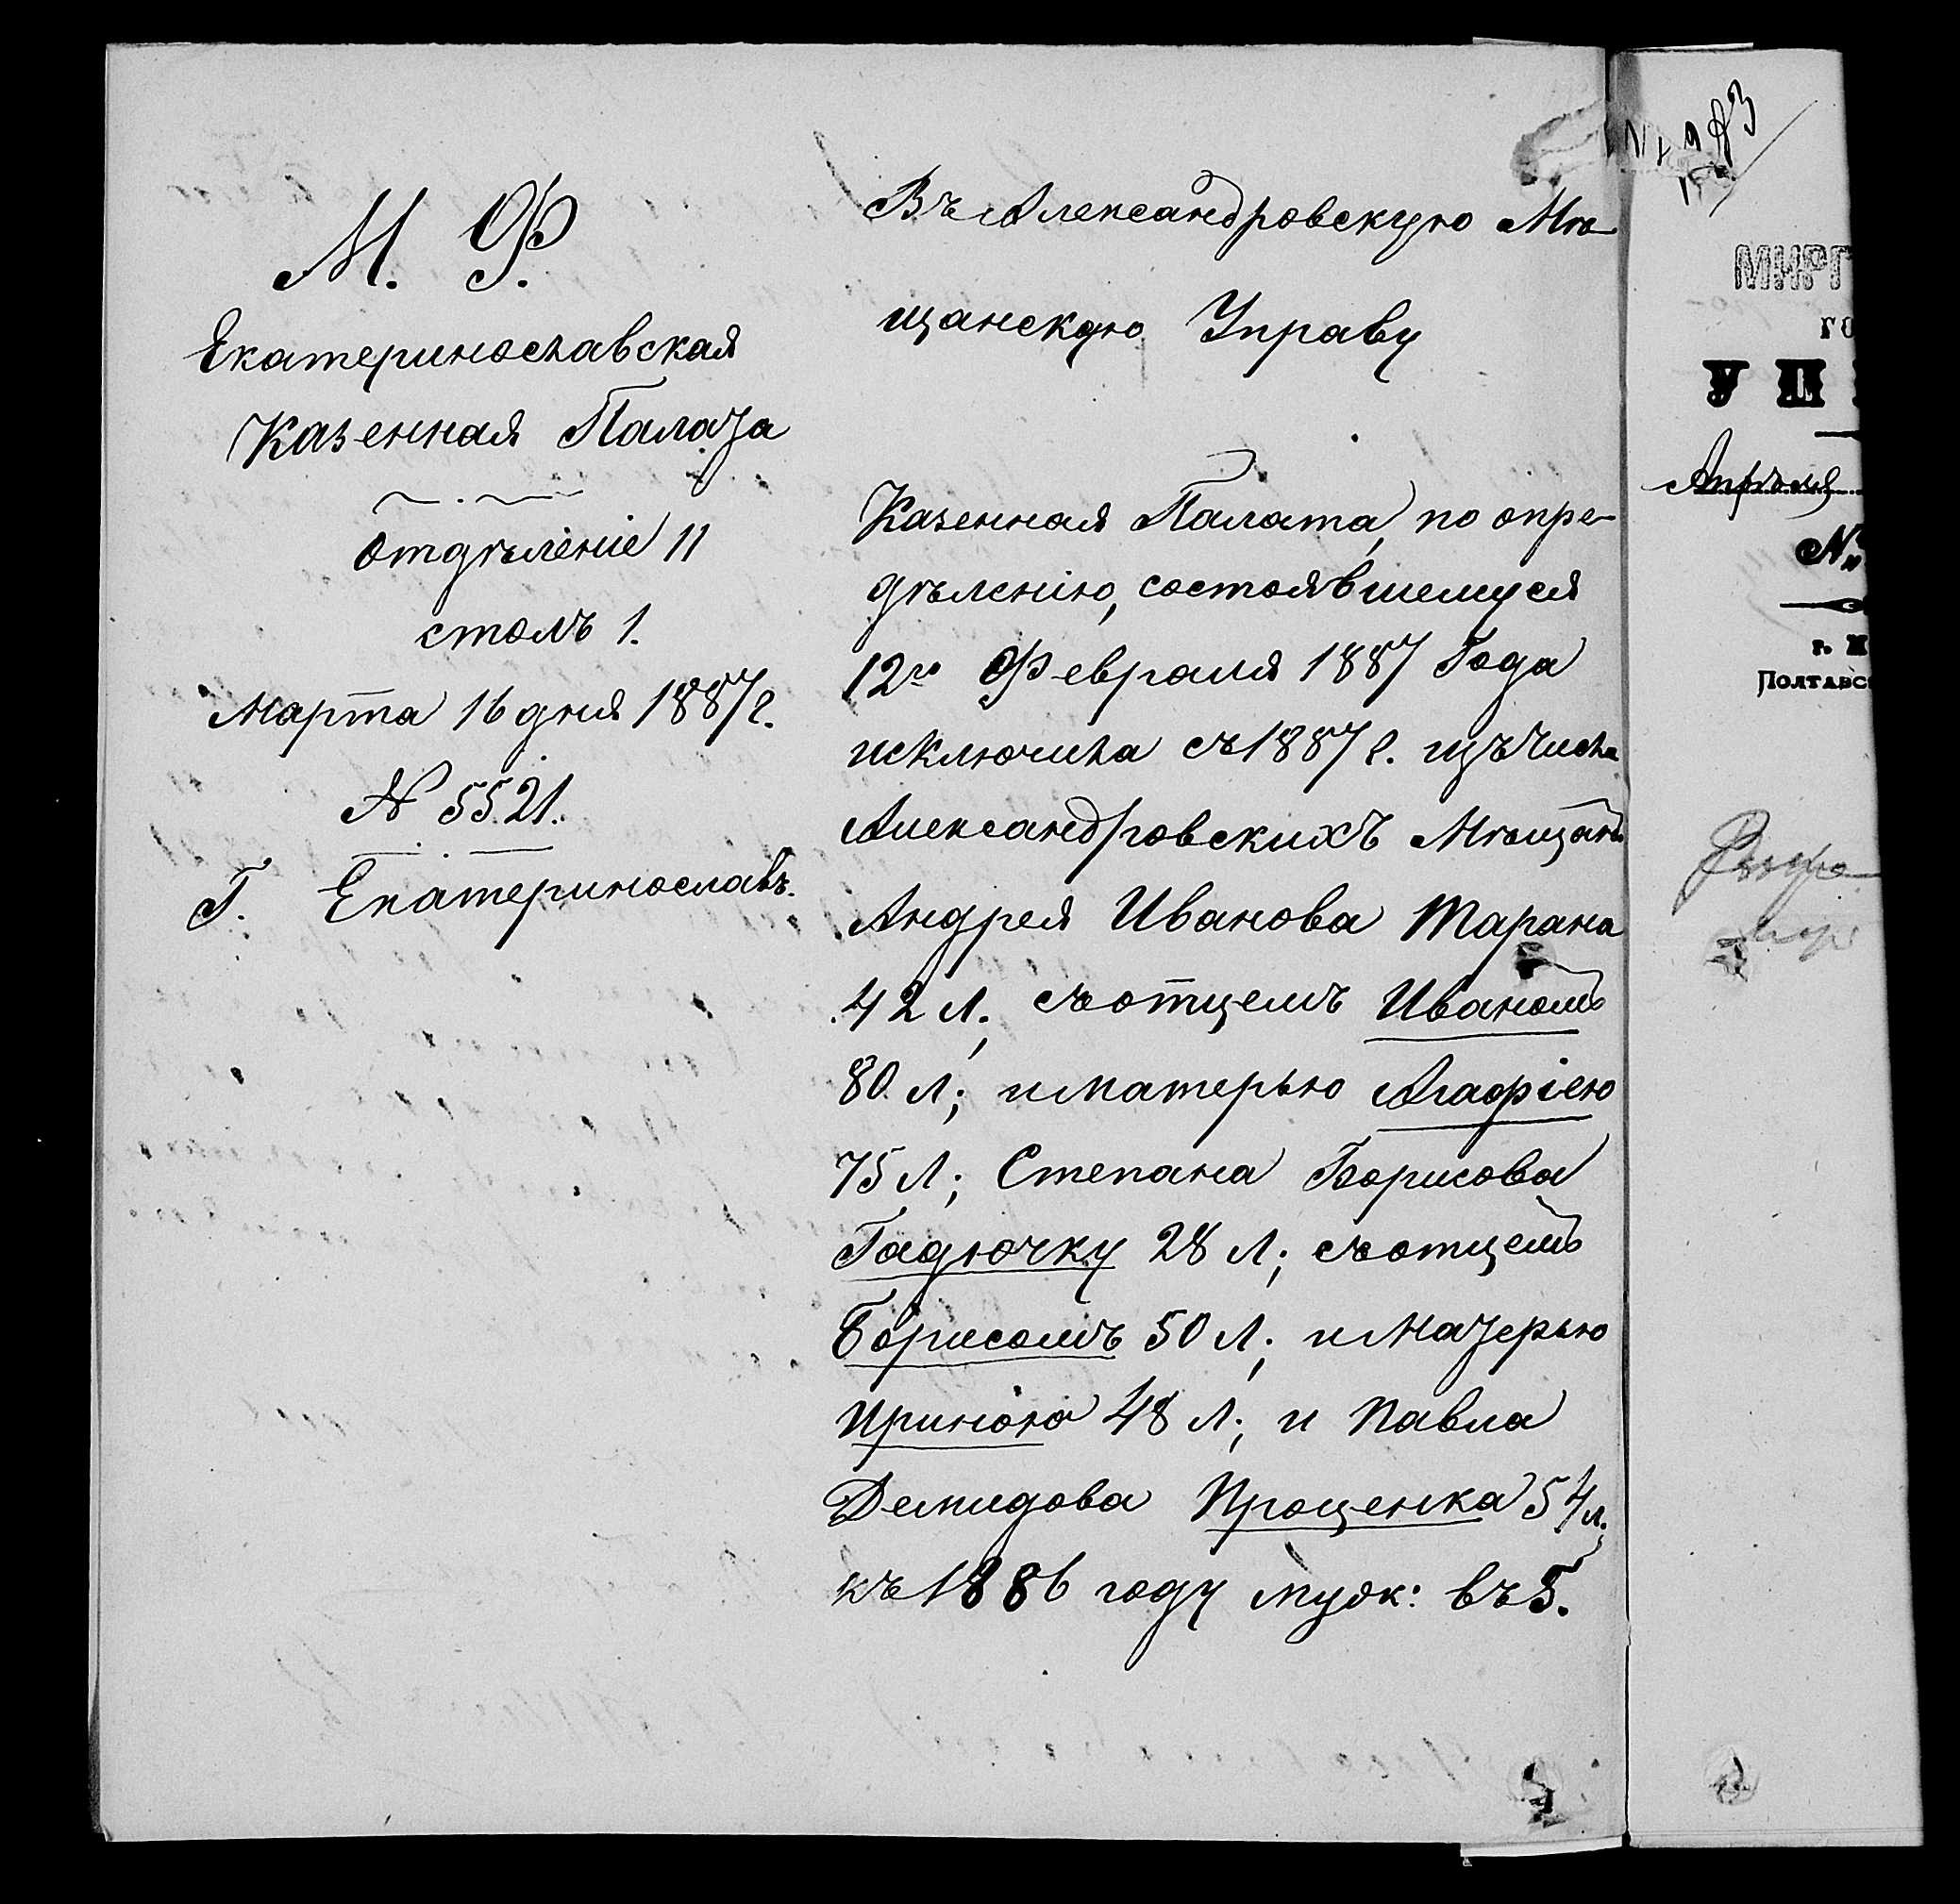 М. Ф.
Екатеринославская
Казенная Палата
Отдѣленіе 11
столъ 1.
Марта 16 дня 1887 г.
№ 5521.
Г. Екатеринославъ.
Въ Александровскую Мѣ-
щанскую Управу
Казенная Палата, по опре-
дѣленію, состоявшемуся
12го Февраля 1887 Года
исключила съ 1887 г. изъ числа
Александровскихъ Мѣщанъ
Андрея Иванова Тарана
42 л; съ отцемъ Иваномъ
80 л; и матерью Агафіею
75 л; Степана Борисова
Гадючку 28 л; съ отцемъ
Борисомъ 50 л; и матерью
Ириною 48 л; и Павла
Демидова Проценка 54 л.
къ 1886 году муж: въ 5.
МИРГ
ГО
УП
Апрѣля
№
г. М
Полтавс